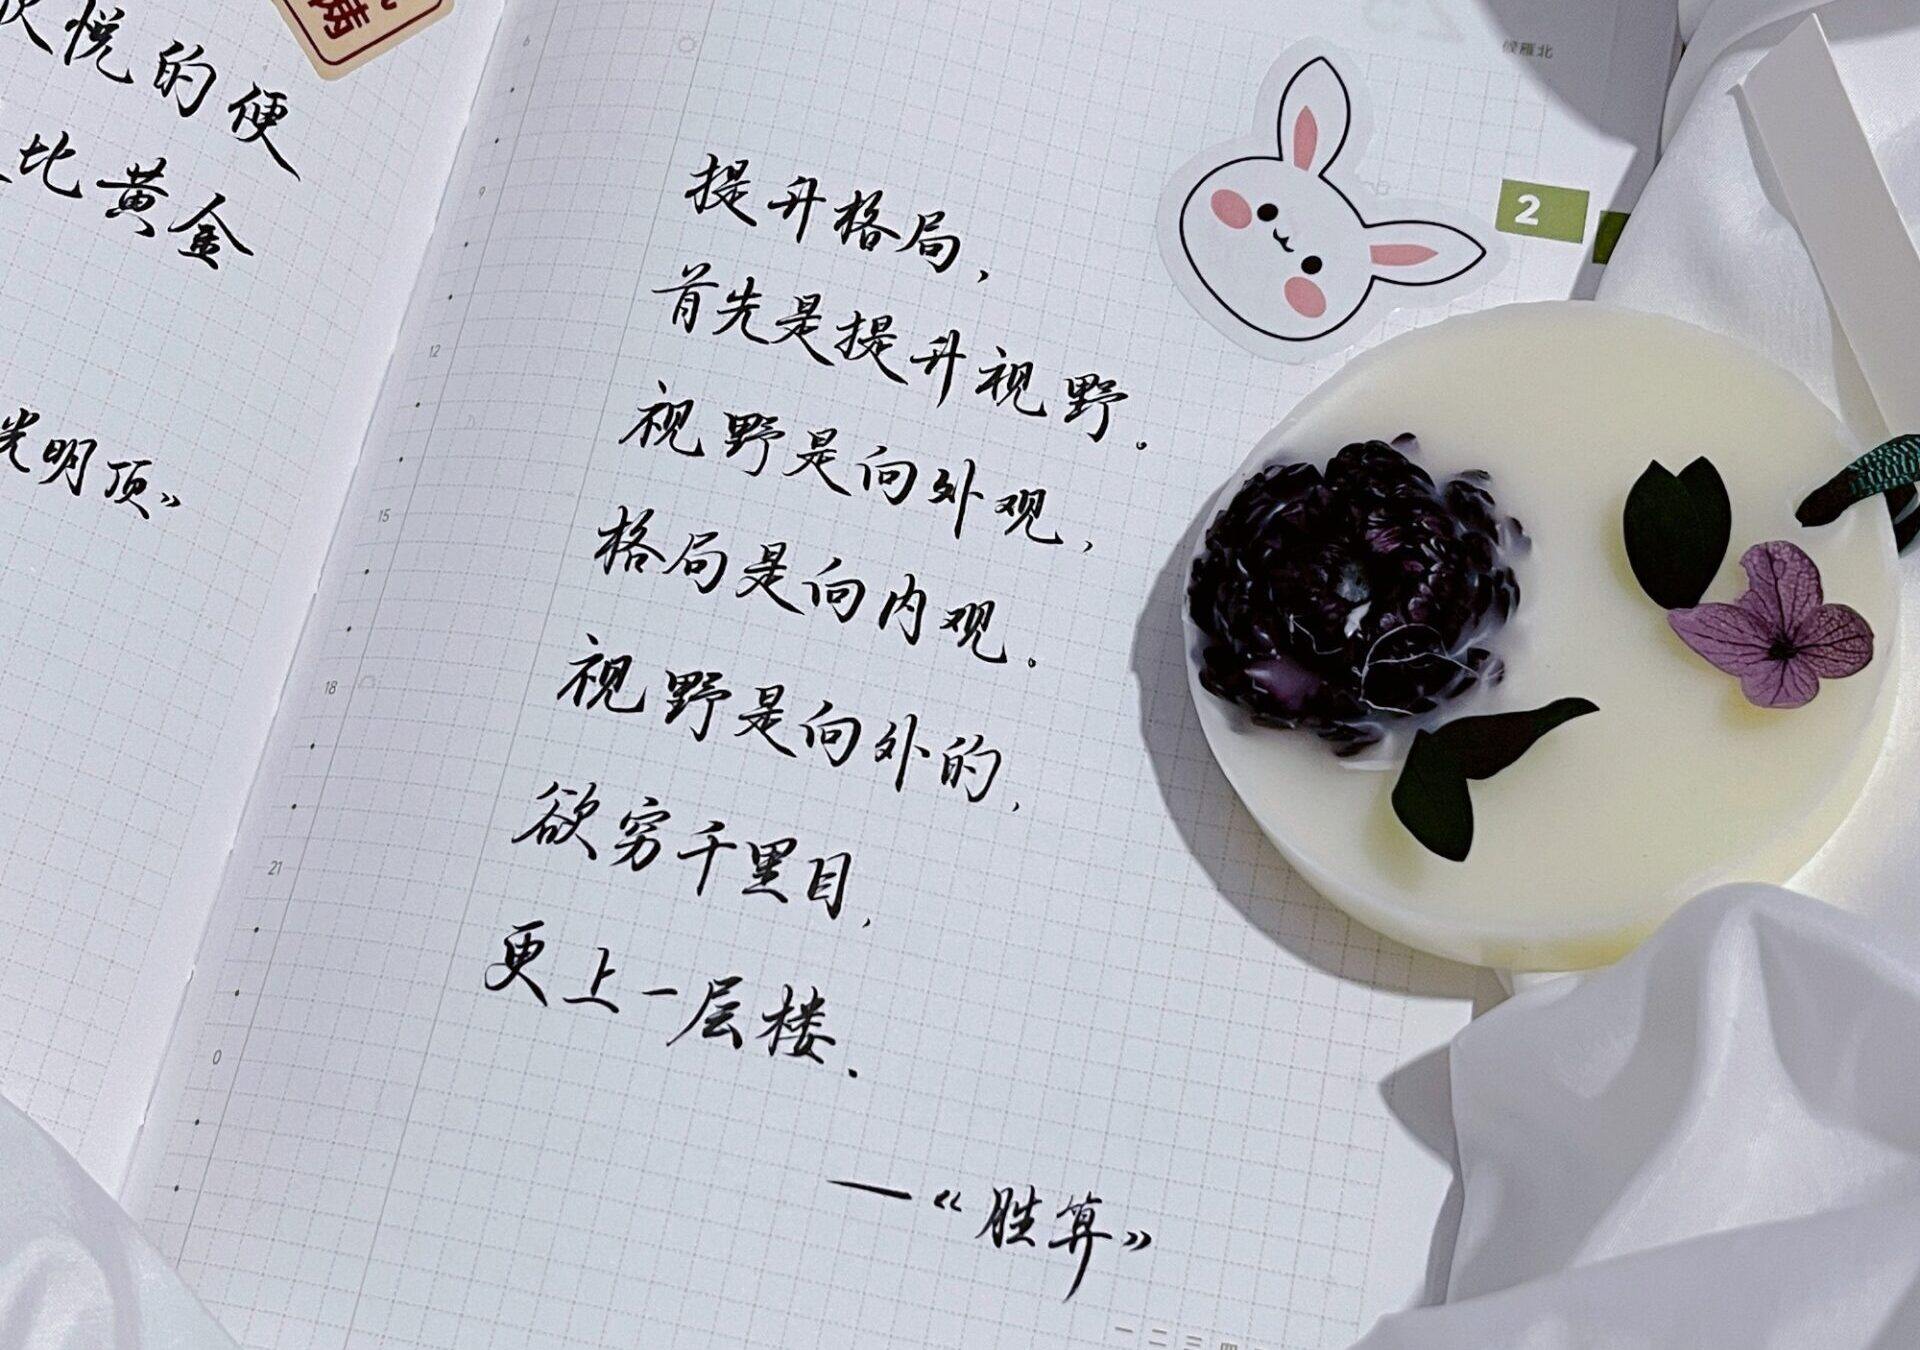 悦的便
比黄金
光明顶》
满
候雁北
2
6
9
12
15
18
21
0
提升格局，
首先是提升视野。
视野是向外观，
格局是向内观。
视野是向外的，
欲穷千里目，
更上一层楼.
—《胜算》
一 二 三 四